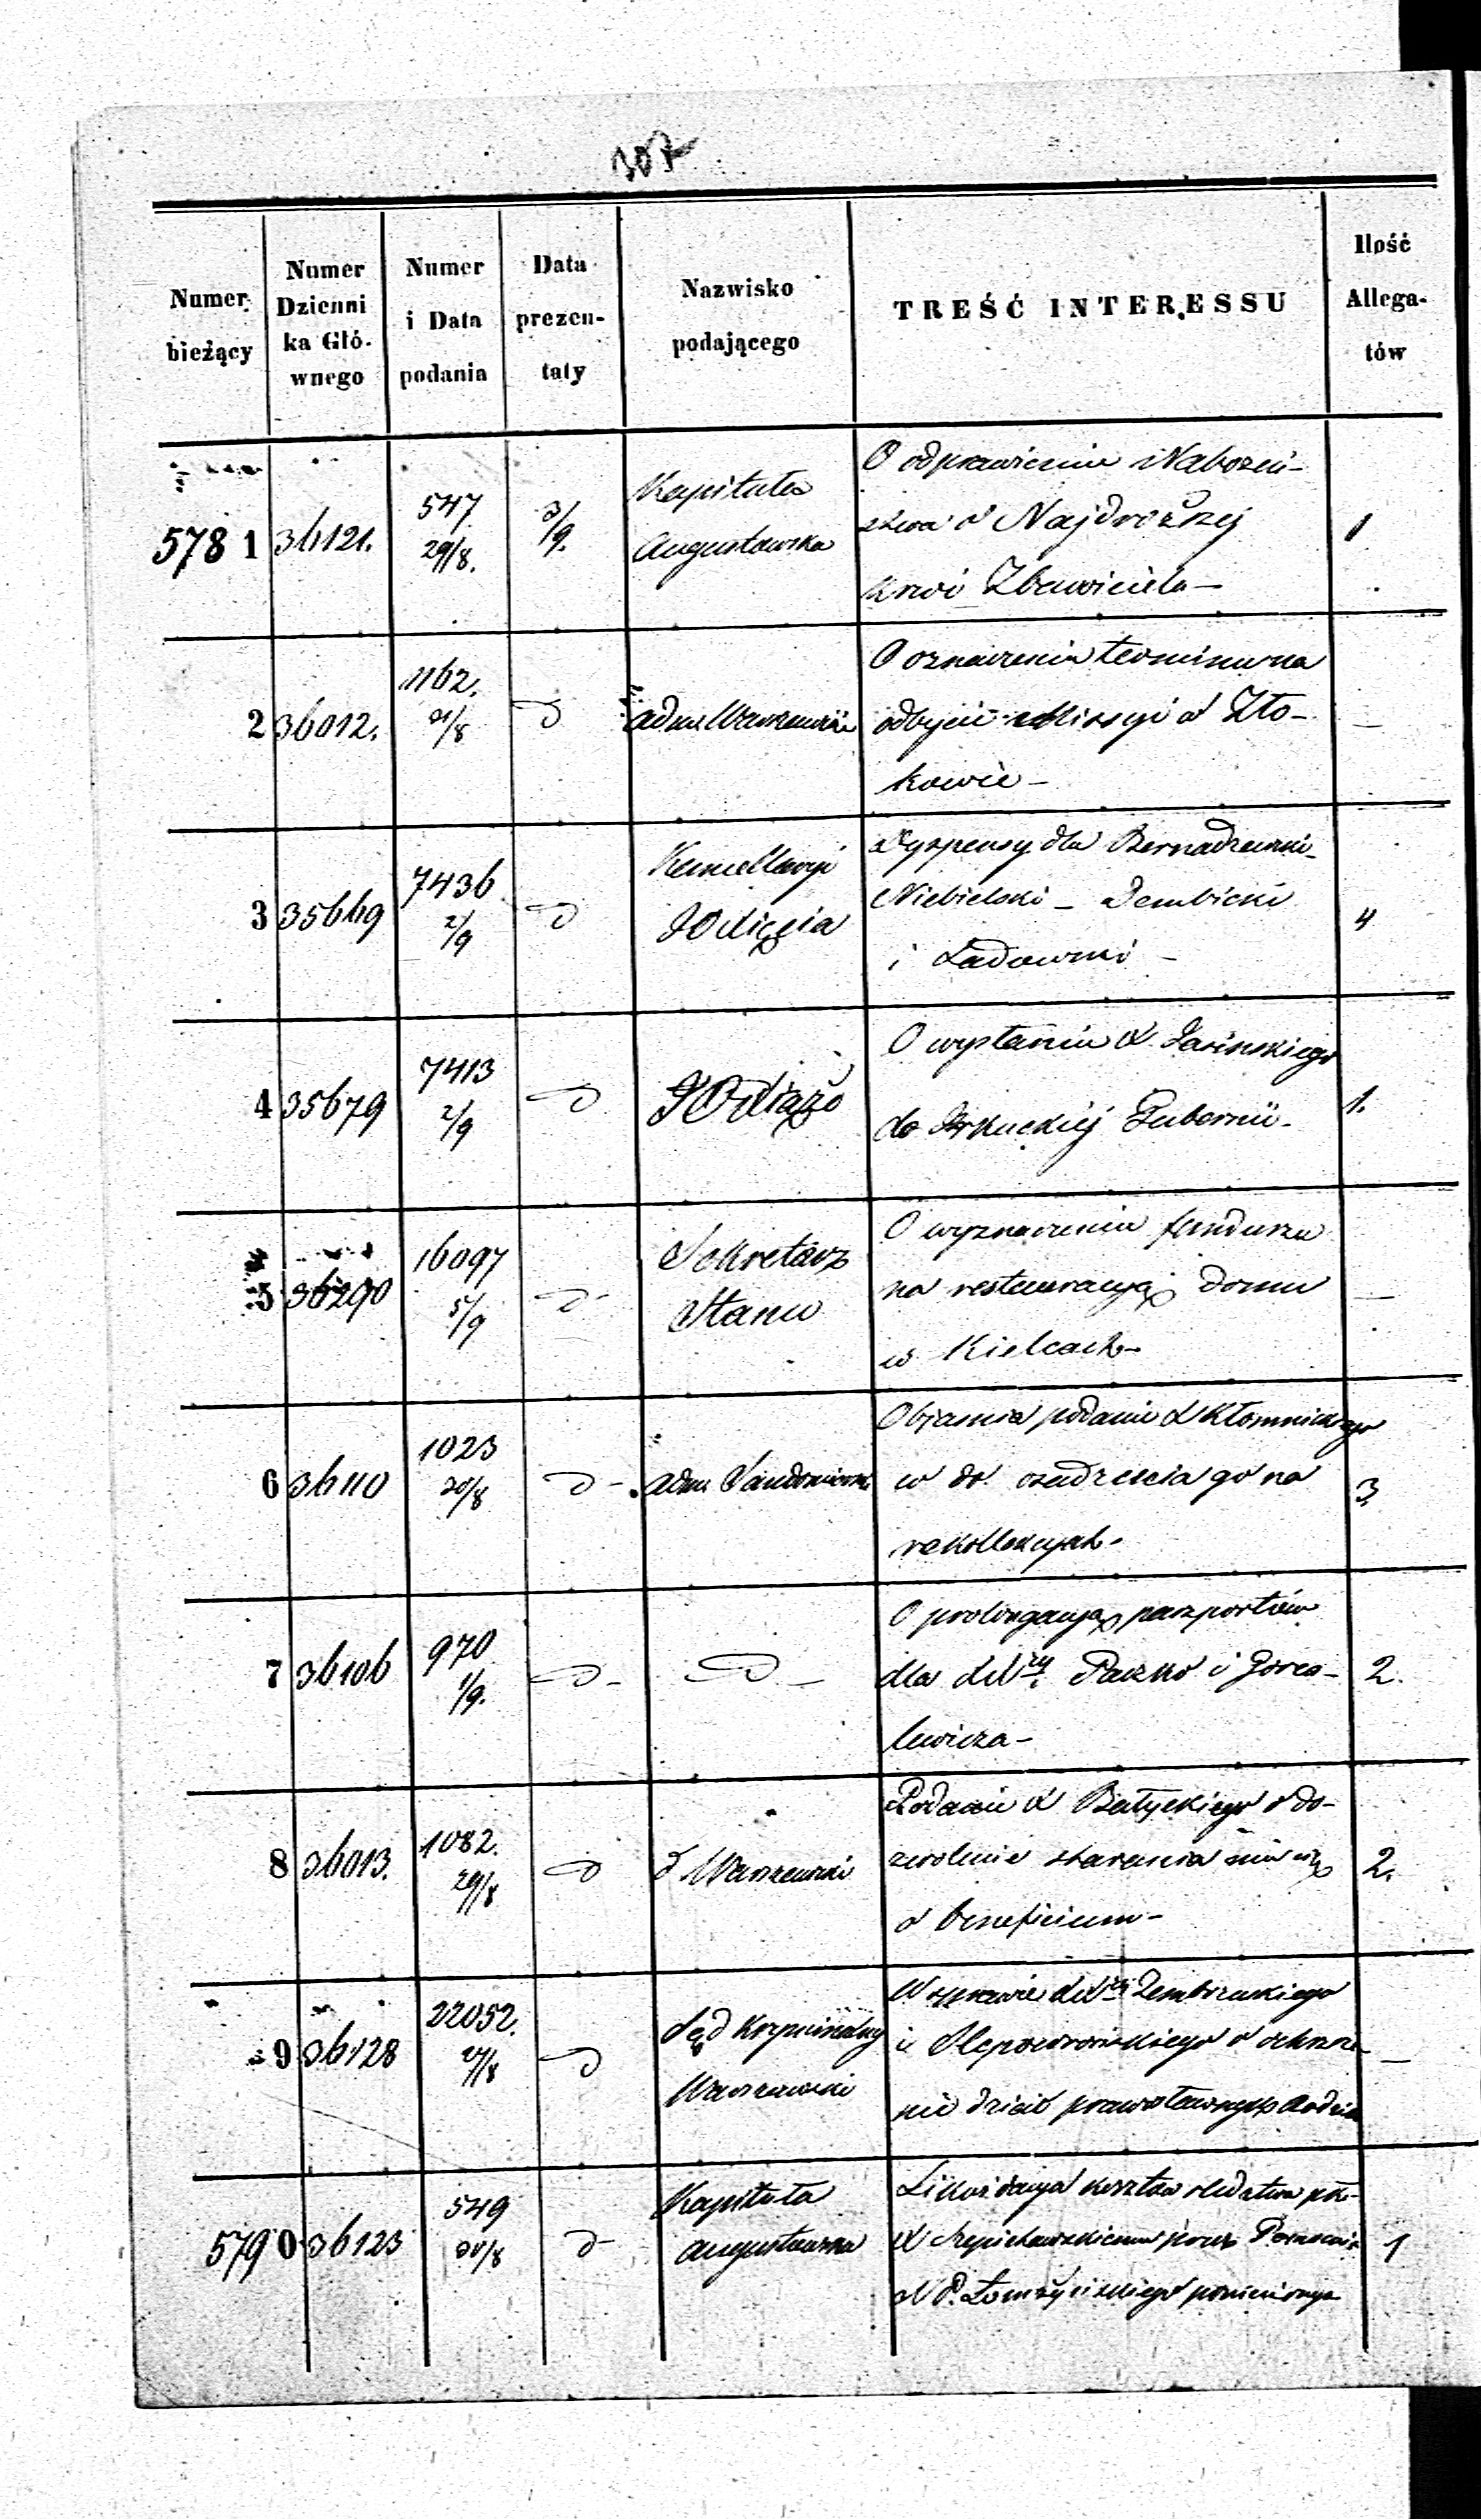 307
Numer bieżący
Numer Dzienni ka Głó- wnego
Numer i Data podania
Data prezen- taty
Nazwisko podającego
TREŚĆ INTERESSU
Ilość Allega- tów
5781 36121. 547 29/8. 3/9. Kapituła Augustowska
O odprawienie Nabożeń-
stwa o Najdroższej
Krwi Zbawiciela —
1
2 36012. 1162. 31/8 d
O oznaczenie terminu na
odbycie Missyi w Zło-
kowie —
—
3 35669 7436 2/9 d Kancellaryi
Dyspensy dla
Niebielski — Dembicki
i Ładowski —
4
4 35679 7413 2/9 d
O wysłaniu X. Jasińskiego
do Irkuckiej Gubernii —
1.
5 36290 16097 5/9 d Sekretarz Stanu
O wyznaczeniu funduszu
na restauracyą domu
w Kielcach —
—
6 36110 1023 30/8 d — Adm. Sandomierski
Objaśnia podanie X Kłomnickiego
w do. osadzenia go na
rekollekcyach.
3
7 36106 970 1/9. d — d —
O prolongacyą paszportów
dla XX Paszko i Gores-
lewicza —
2.
8 36013. 1082. 29/8 d d Warszawski
Podanie X o do-
zwolenie starania się
o beneficium —
2.
9 36128 22052. d Sąd Kryminalny Warszawski
W sprawie
i o ochrzce-
nie dzieci prawosławnych
—
5790 36123 549 30/8 d Kapituła Augustowska
Likwidacya kosztów śledztwa
X przez
1